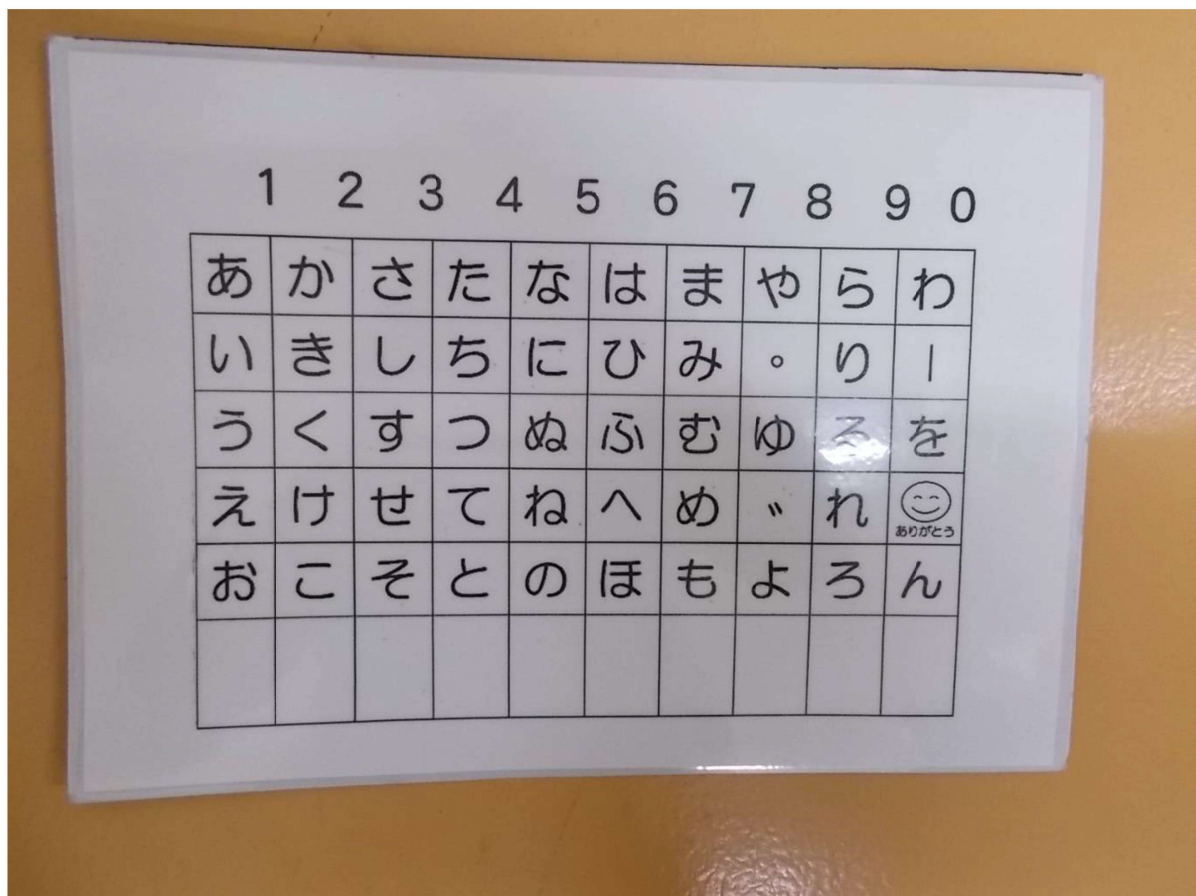 1 2 3 4 5 6 7 8 9 0
あ か さ た な は ま や ら わ
い き し ち に ひ み 。 り ー
う く す つ ぬ ふ む ゆ る を
え け せ て ね へ め ゛ れ ありがとう
お こ そ と の ほ も よ ろ ん